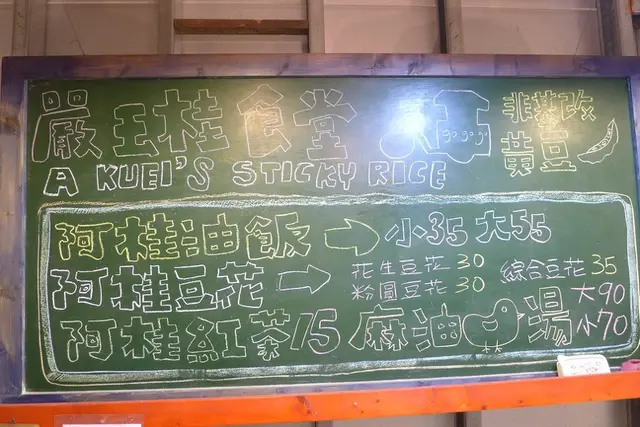 嚴玉桂食堂 gogogo
A KUEI'S STICKY RICE
非基改
黃豆
阿桂油飯 小35 大55
阿桂豆花 花生豆花 30 綜合豆花 35
粉圓豆花 30
阿桂紅茶15 麻油湯 大90
小70